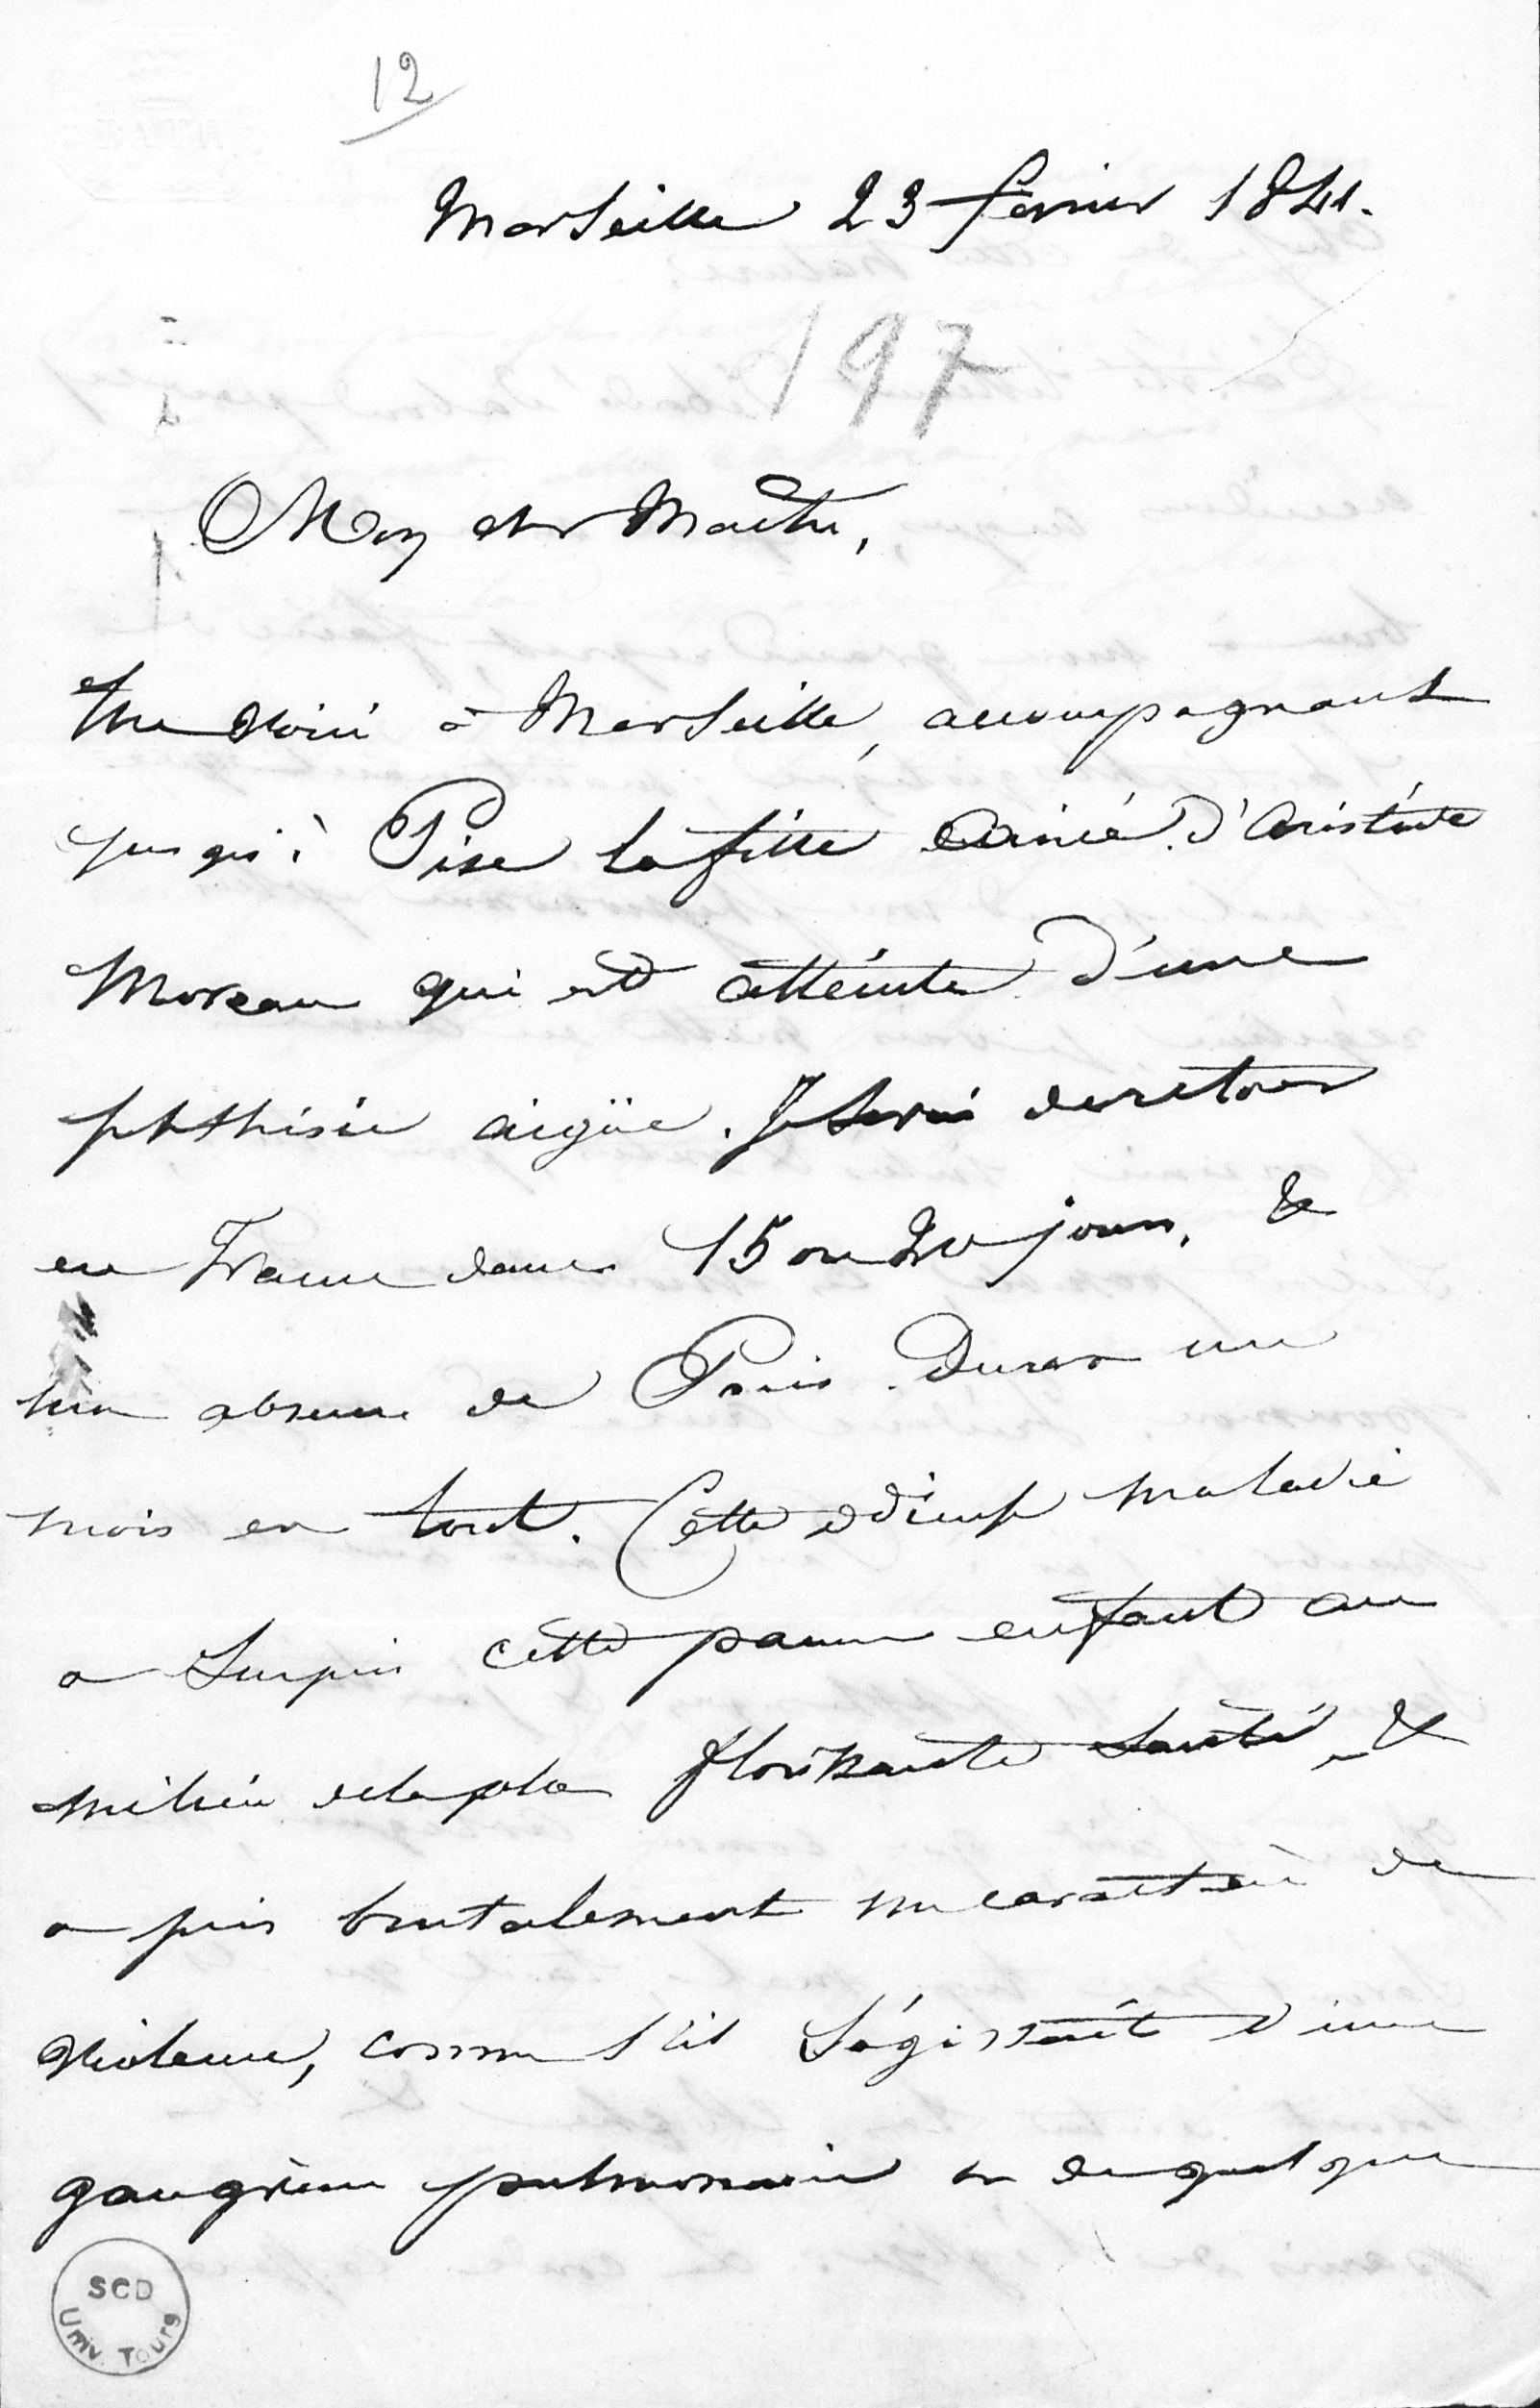 12
Marseille 23 fevrier 1841.
197
Mon cher Maître,
Me voici à Marseille, accompagnant
jusqu'à Pise la fille ainée d'Aristide
Moreau qui est atteinte d'une
phthisie aigüe. Je serai de retour
en France dans 15 ou 20 jours. &
mon absence de Paris durera un
mois en tout. Cette maladie
a surpris cette pauvre enfant au
milieu de la plus florissante santé, &
a pris brutalement un caractère de
violence, comme s'il s'agissait d'une
gangrène pulmonaire ou de quelque
SCD
Univ. Tours